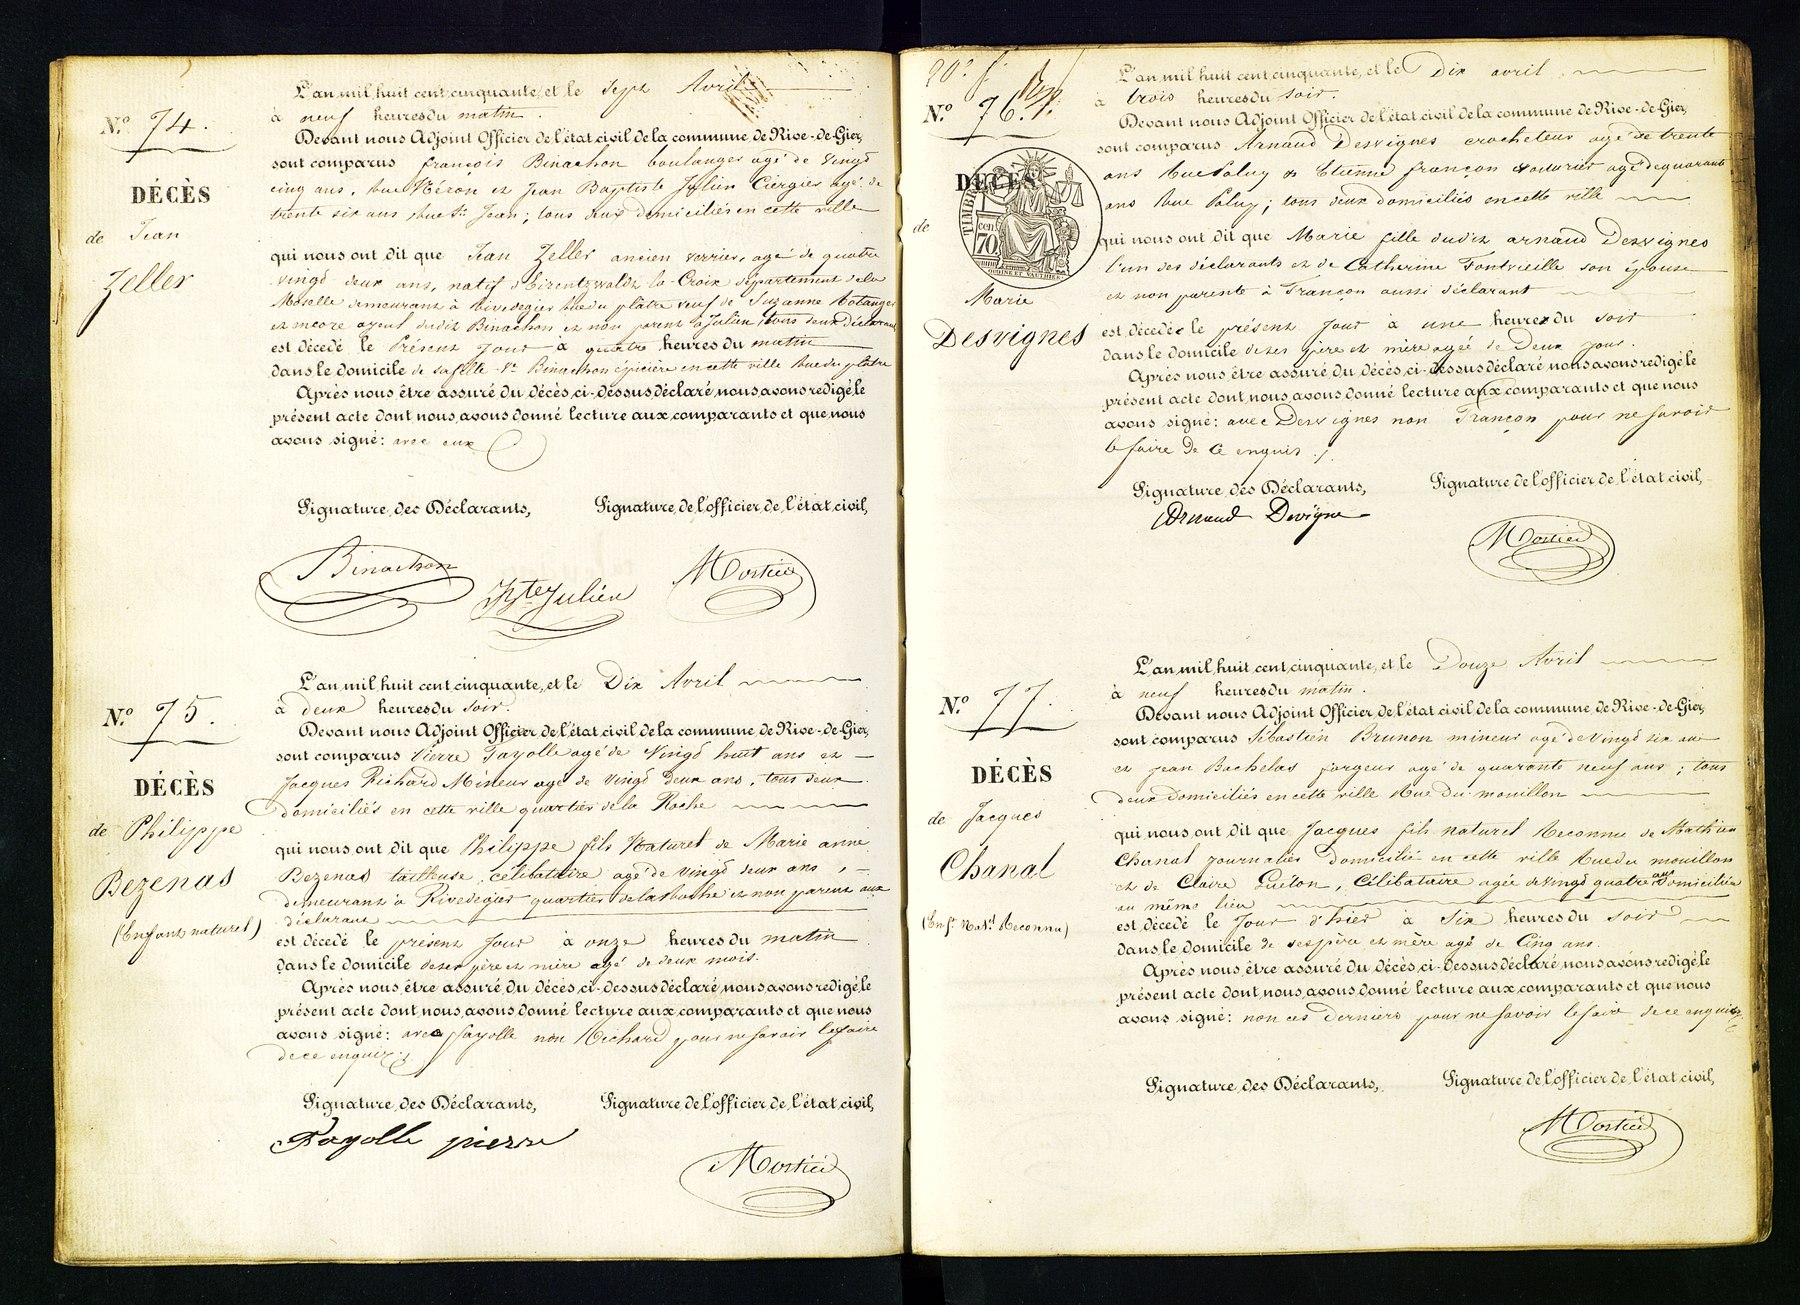 L'an mil huit cent cinquante, et le Sept Avril
à neuf heures du matin.
N.º 74.
Devant nous Adjoint Officier de l'état civil de la commune de Rive-de-Gier,
sont comparus françois Binachon boulanger agé de Vingt
cinq ans, Rue Féron et Jean Baptiste Julien Ciergier agé de
DÉCÈS
trente six ans Rue St. Jean; tous deux domiciliés en cette ville
de Jean
Zeller
qui nous ont dit que Jean Zeller ancien verrier, agé de quatre
vingt deux ans, natif la Croix département de la
Moselle demeurant à Rivedegier Rue du plâtre veuf de Suzanne
et encore ayeul dudit Binachon et non parent à Julien tous deux déclarans
est décedé le Présent Jour à quatre heures du matin
dans le domicile de sa fille Ve. Binachon épicière en cette ville Rue du plâtre
Après nous être assuré du décès ci-dessus déclaré, nous avons redigé le
présent acte dont nous avons donné lecture aux comparants et que nous
avons signé: avec eux
Signature des Déclarants, Signature de l'officier de l'état civil,
Binachon Jte Julien
L'an mil huit cent cinquante, et le Dix Avril
à deux heures du Soir.
N.º 75.
Devant nous Adjoint Officier de l'état civil de la commune de Rive-de-Gier,
sont comparus Pierre Fayolle agé de Vingt huit ans et
Jacques Richard Mineur agé de vingt deux ans, tous deux
DÉCÈS
domiciliés en cette ville quartier de la Roche
de Philippe
Bezenas
(Enfant naturel)
qui nous ont dit que Philippe fils Naturel de Marie anne
Bezenas tailleuse, célibataire agé de vingt deux ans,
demeurant à Rivedegier quartier de la Roche et non parent aux
déclarans
est décedé le présent Jour à onze heures du matin
dans le domicile de ses père et mère agé de deux mois.
Après nous être assuré du décès ci-dessus déclaré, nous avons redigé le
présent acte dont nous avons donné lecture aux comparants et que nous
avons signé: avec fayolle non Richard pour ne savoir le faire
de ce enquis
Signature des Déclarants, Signature de l'officier de l'état civil,
Fayolle pierre
20e f.
L'an mil huit cent cinquante, et le Dix avril
à trois heures du Soir.
N.º 76.
Devant nous Adjoint Officier de l'état civil de la commune de Rive-de-Gier,
sont comparus Arnaud Desvignes crocheteur agé de trente
ans Rue Paluy et Etienne françon voiturier agé de quarante
ans Rue Paluy; tous deux domiciliés en cette ville
DÉCÈS
TIMBRE
cen
70
OUDINÉ ET VAUTHIER
de
Marie
Desvignes
qui nous ont dit que Marie fille dudit arnaud Desvignes
l'un des déclarants et de Catherine Fontvieille son épouse
et non parente à françon aussi déclarant
est décedée le présent Jour à une heure du soir
dans le domicile de ses père et mère agée de Deux jour.
Après nous être assuré du décès ci-dessus déclaré, nous avons redigé le
présent acte dont nous avons donné lecture aux comparants et que nous
avons signé: avec Desvignes non françon pour ne savoir
le faire de ce enquis
Signature des Déclarants, Signature de l'officier de l'état civil,
Arnaud Devigne
L'an mil huit cent cinquante, et le Douze Avril
à neuf heures du matin.
N.º 77.
Devant nous Adjoint Officier de l'état civil de la commune de Rive-de-Gier,
sont comparus Sébastien Brunon mineur agé de Vingt six ans
et Jean Bachelas forgeur agé de quarante neuf ans; tous
DÉCÈS
deux Domiciliés en cette ville Rue du mouillon
de Jacques
Chanal
(Enft. Natl. Reconnu)
qui nous ont dit que Jacques fils naturel Reconnu de Mathieu
Chanal journalier domicilié en cette ville Rue du mouillon
et de Claire Guéton, Célibataire agée de vingt quatre ans domiciliée
au même lieu
est décedé le Jour d'hier à Six heures du soir
dans le domicile de ses père et mère agé de Cinq ans.
Après nous être assuré du décès ci-dessus déclaré, nous avons redigé le
présent acte dont nous avons donné lecture aux comparants et que nous
avons signé: non ces derniers pour ne savoir le faire de ce enquis
Signature des Déclarants, Signature de l'officier de l'état civil,